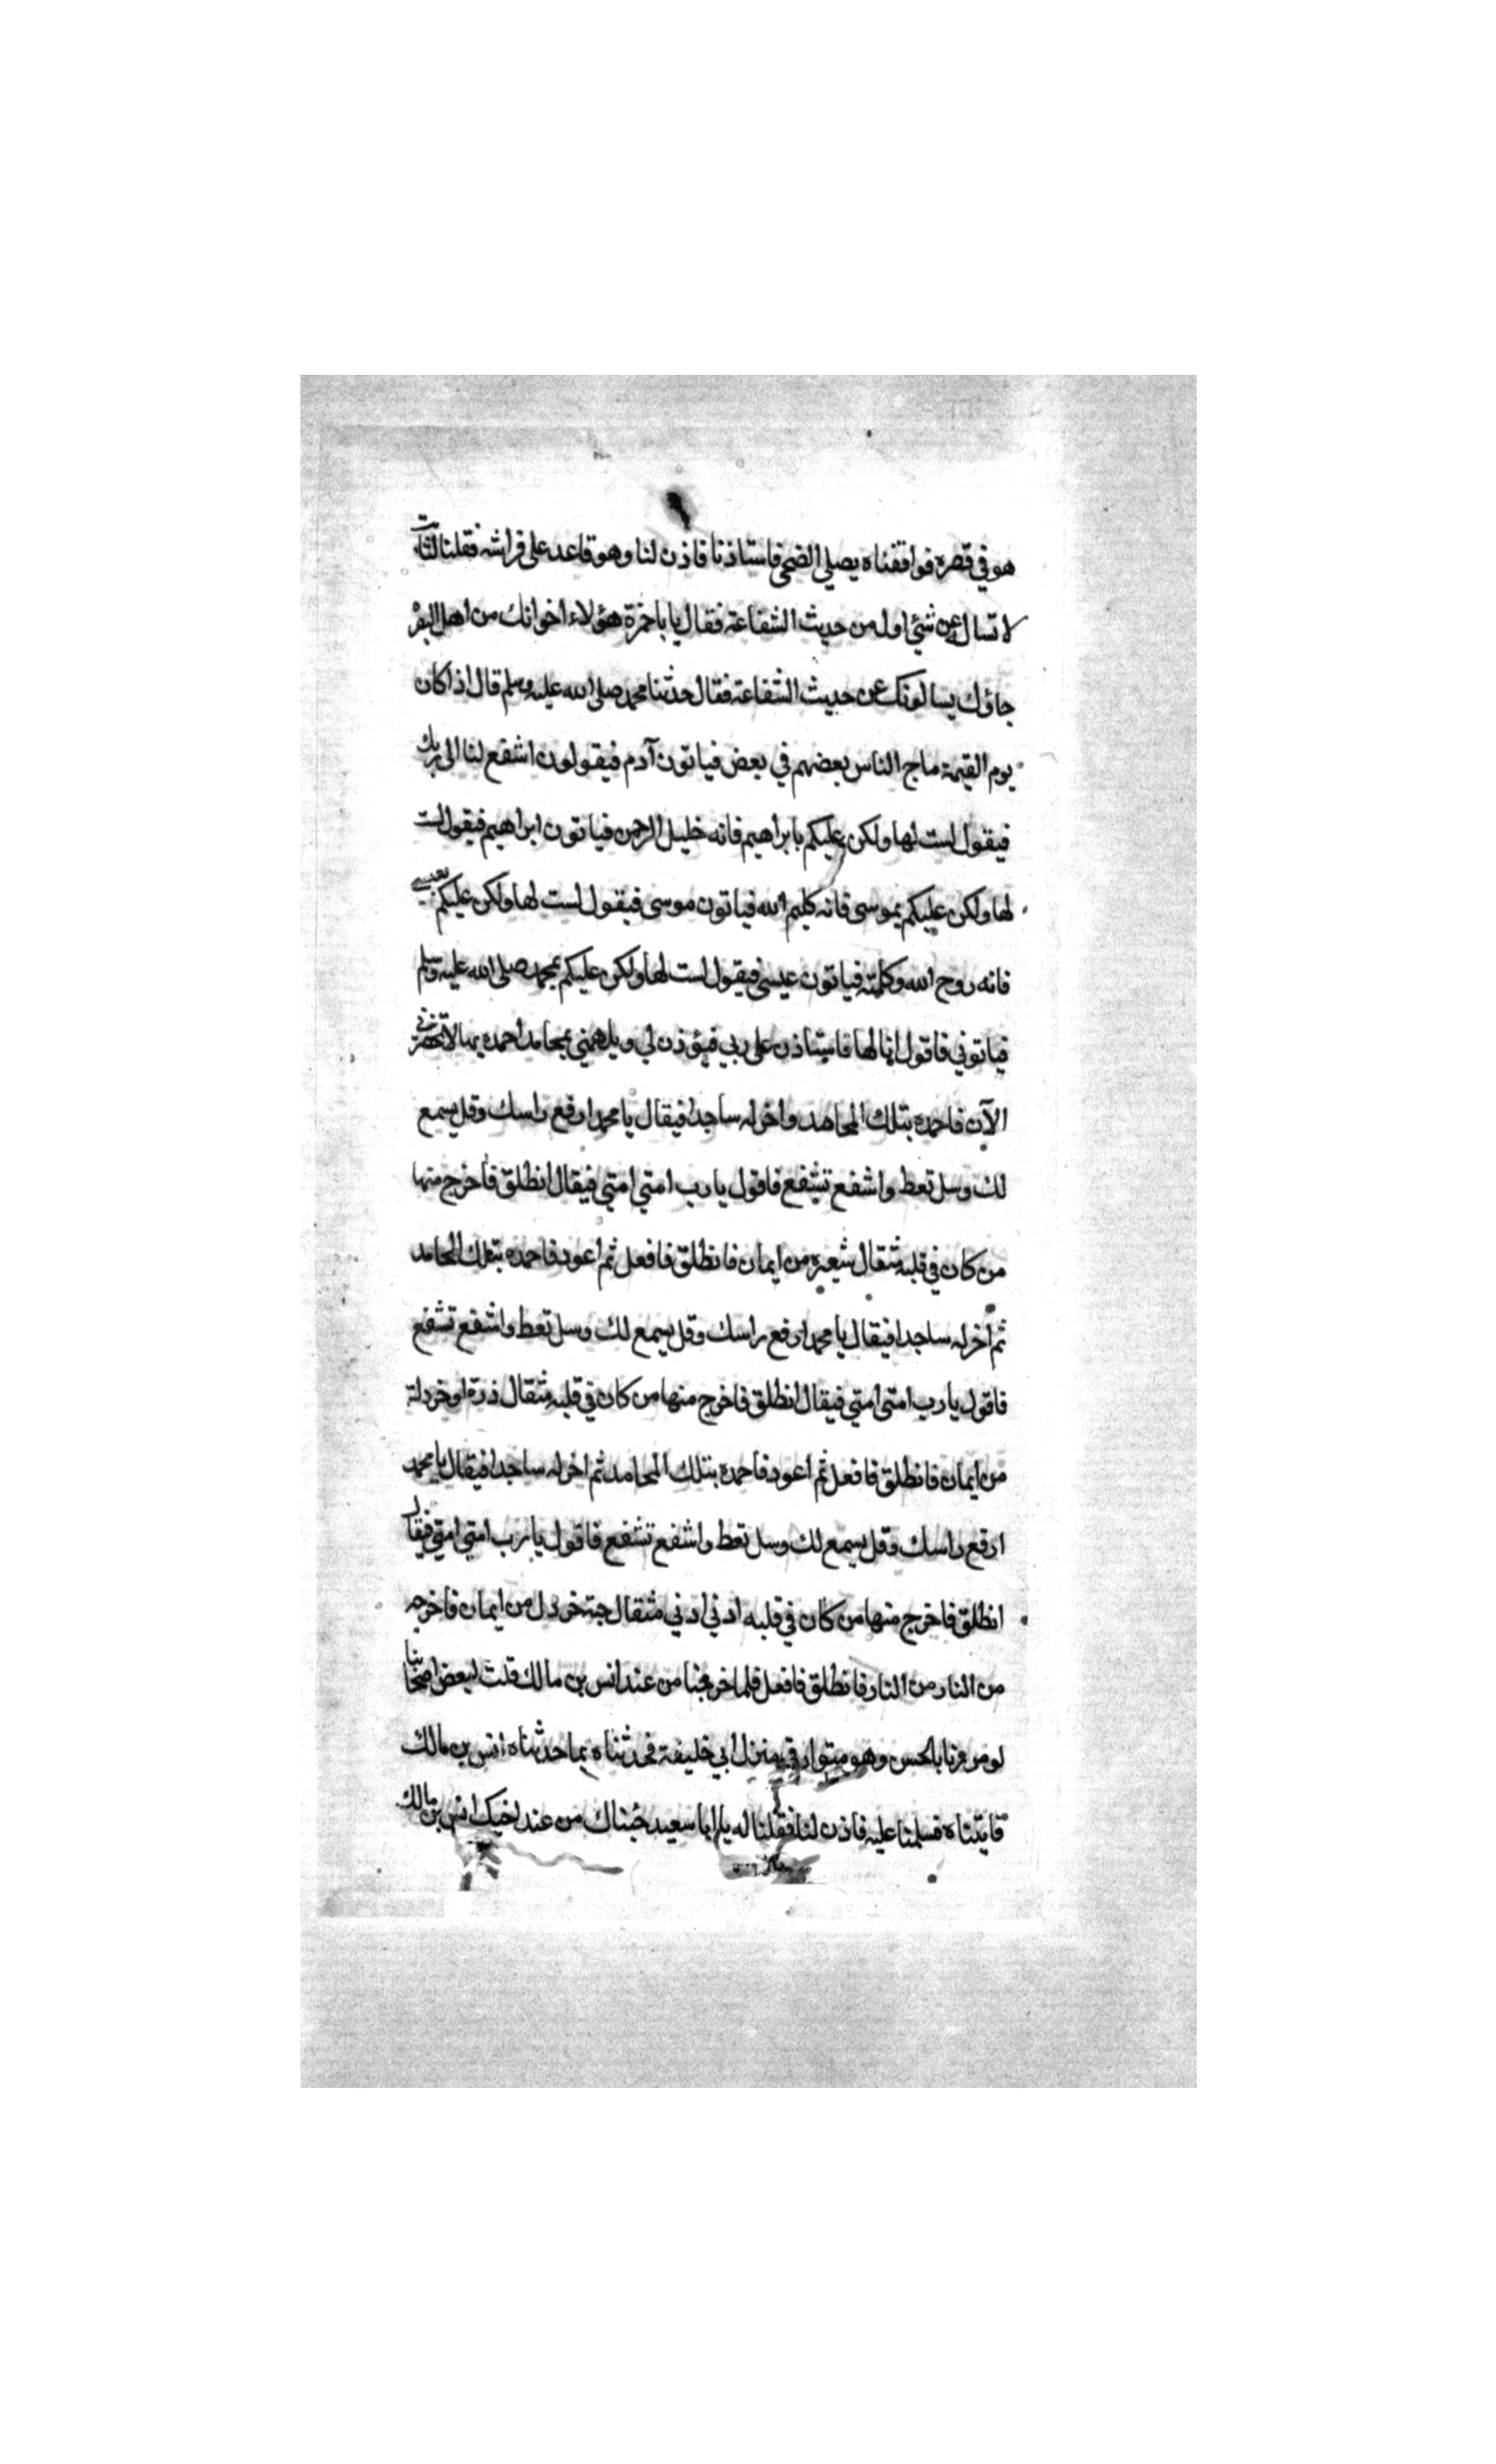 هو في قصره فوافقناه يصلي الضحى فاستاذنا فاذن لنا وهو قاعد على فراشه فقلنا لثابت
لا تسال عن شئي اول من حديث الشفاعة فقال يا با حمزة هؤلاء اخوانك من اهل البصرة
جاؤك يسالونك عن حديث الشفاعة فقال حدثنا محمد صلى الله عليه وسلم قال اذا كان
يوم القيمة ماج الناس بعضهم في بعض فياتون آدم فيقولون اشفع لنا الى ربك
فيقول لست لها ولكن عليكم بابراهيم فانه خليل الرحمن فياتون ابراهيم فيقول لست
لها ولكن عليكم بموسى فانه كليم الله فياتون موسى فيقول لست لها ولكن عليكم بعيسى
فانه روح الله وكلمته فياتون عيسى فيقول لست لها ولكن عليكم بمحمد صلى الله عليه وسلم
فياتوني فاقول انا لها فاستاذن على ربي فيؤذن لي ويلهمني بمحامد احمده بها لا تحضرني
الآن فاحمده بتلك المحامد واخر له ساجدا فيقال يا محمد ارفع راسك وقل يسمع
لك وسل تعط واشفع تشفع فاقول يا رب امتي امتي فيقال انطلق فاخرج منها
من كان في قلبه مثقال شعيرة من ايمان فانطلق فافعل ثم اعود فاحمده بتلك المحامد
ثم اخر له ساجدا فيقال يا محمد ارفع راسك وقل يسمع لك وسل تعط واشفع تشفع
فاقول يا رب امتي امتي فيقال انطلق فاخرج منها من كان في قلبه مثقال ذرة او خردلة
من ايمان فانطلق فافعل ثم اعود فاحمده بتلك المحامد ثم اخر له ساجدا فيقال يا محمد
ارفع راسك وقل يسمع لك وسل تعط واشفع تشفع فاقول يا رب امتي امتي فيقال
انطلق فاخرج منها من كان في قلبه ادني ادني مثقال حبة خردل من ايمان فاخرجه
من النار من النار فانطلق فافعل فلما خرجنا من عند انس بن مالك قلت لبعض اصحابنا
لو مررنا بالحسن وهو متوار في منزل ابي خليفة فحدثناه بما حدثناه انس بن مالك
فاتيناه فسلمنا عليه فاذن لنا فقلنا له يا ابا سعيد جئناك من عند اخيك انس بن مالك